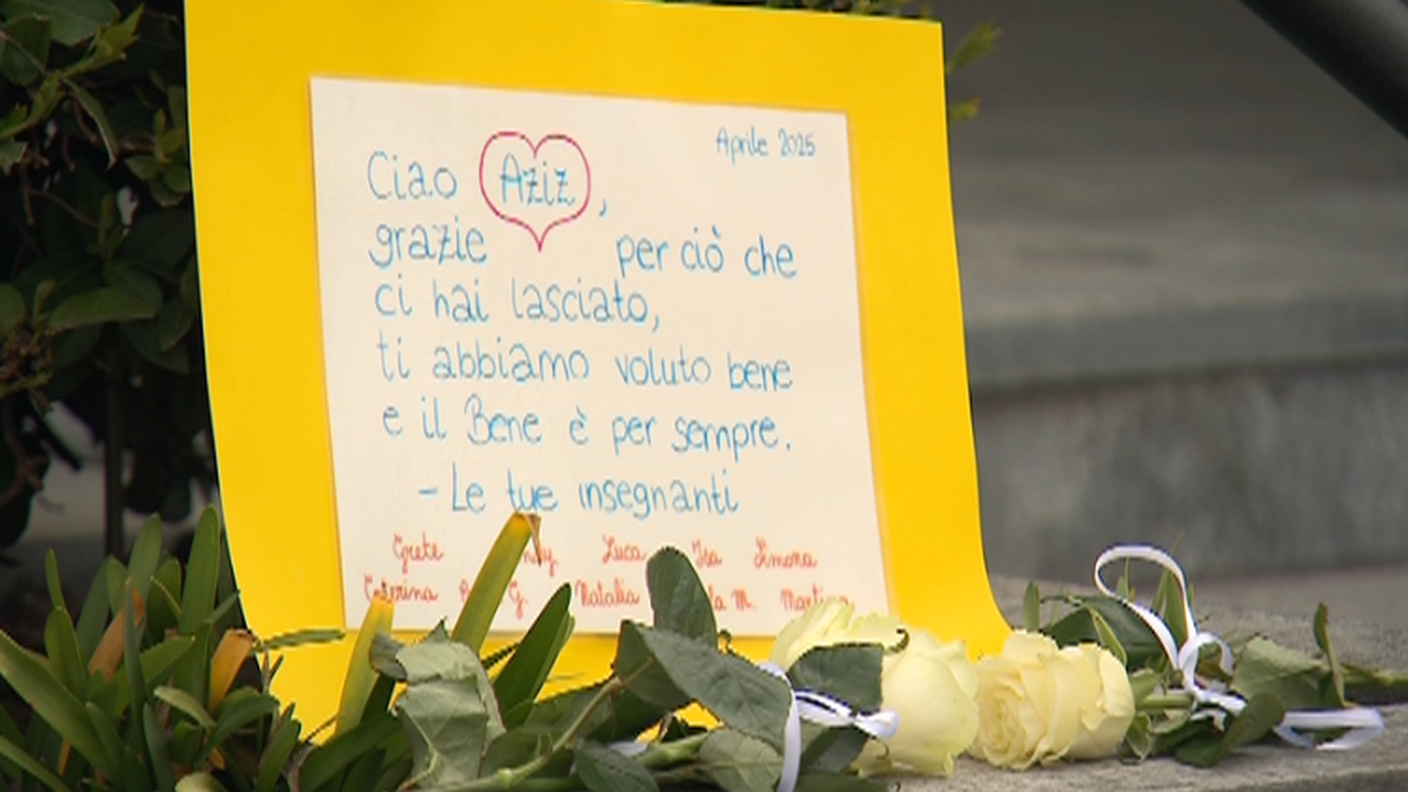 Aprile 2025
Ciao Aziz,
grazie per ciò che
ci hai lasciato,
ti abbiamo voluto bene
e il Bene è per sempre.
- Le tue insegnanti
Grete Luca Isa Simona
Caterina G. Natalia M. Martina